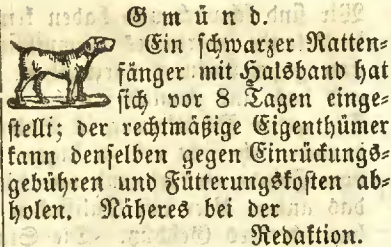 Gmünd.
Ein schwarzer Ratten=
fänger mit Halsband hat
sich vor 8 Tagen einge=
stellt; der rechtmäßige Eigenthümer
kann denselben gegen Einrückungs=
gebühren und Fütterungskosten ab=
holen. Näheres bei der
Redaktion.